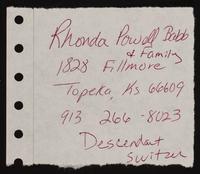 Rhonda Powell Babb
& Family
1828 Fillmore
Topeka, Ks 66609
913 266-8023
Descendant
Switzer